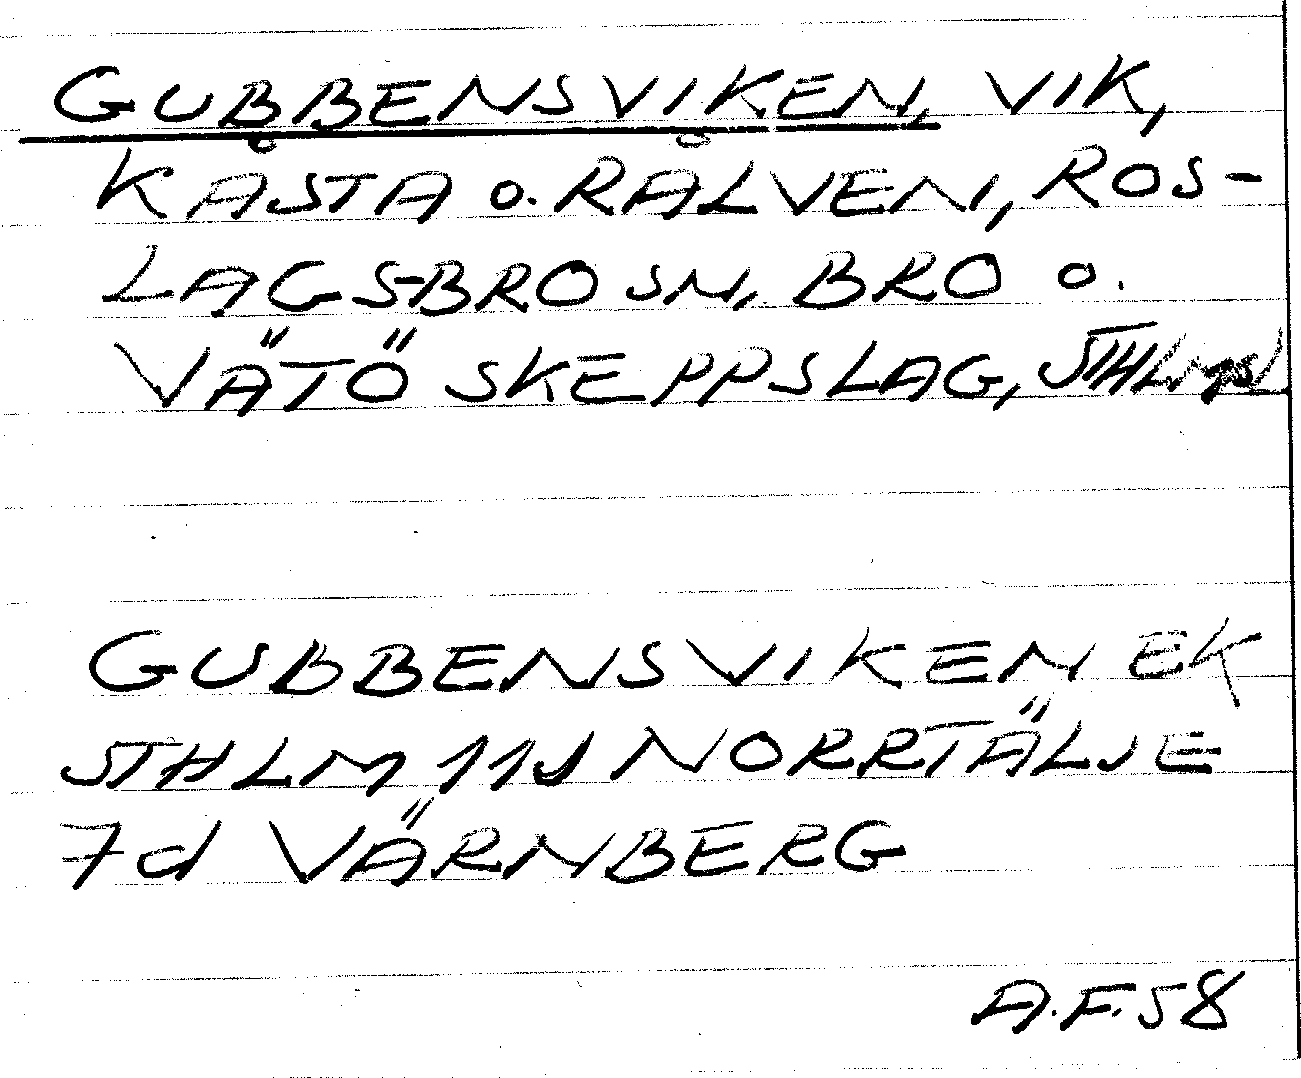 GUBBENSVIKEN, VIK,
KÅSTA o. RÅLVEN, ROS-
LAGS-BRO SN, BRO o.
VÄTÖ SKEPPSLAG, STHLMSL
GUBBENSVIKEN EK
STHLM 11J NORRTÄLJE
7d VÄRNBERG
A.F.58